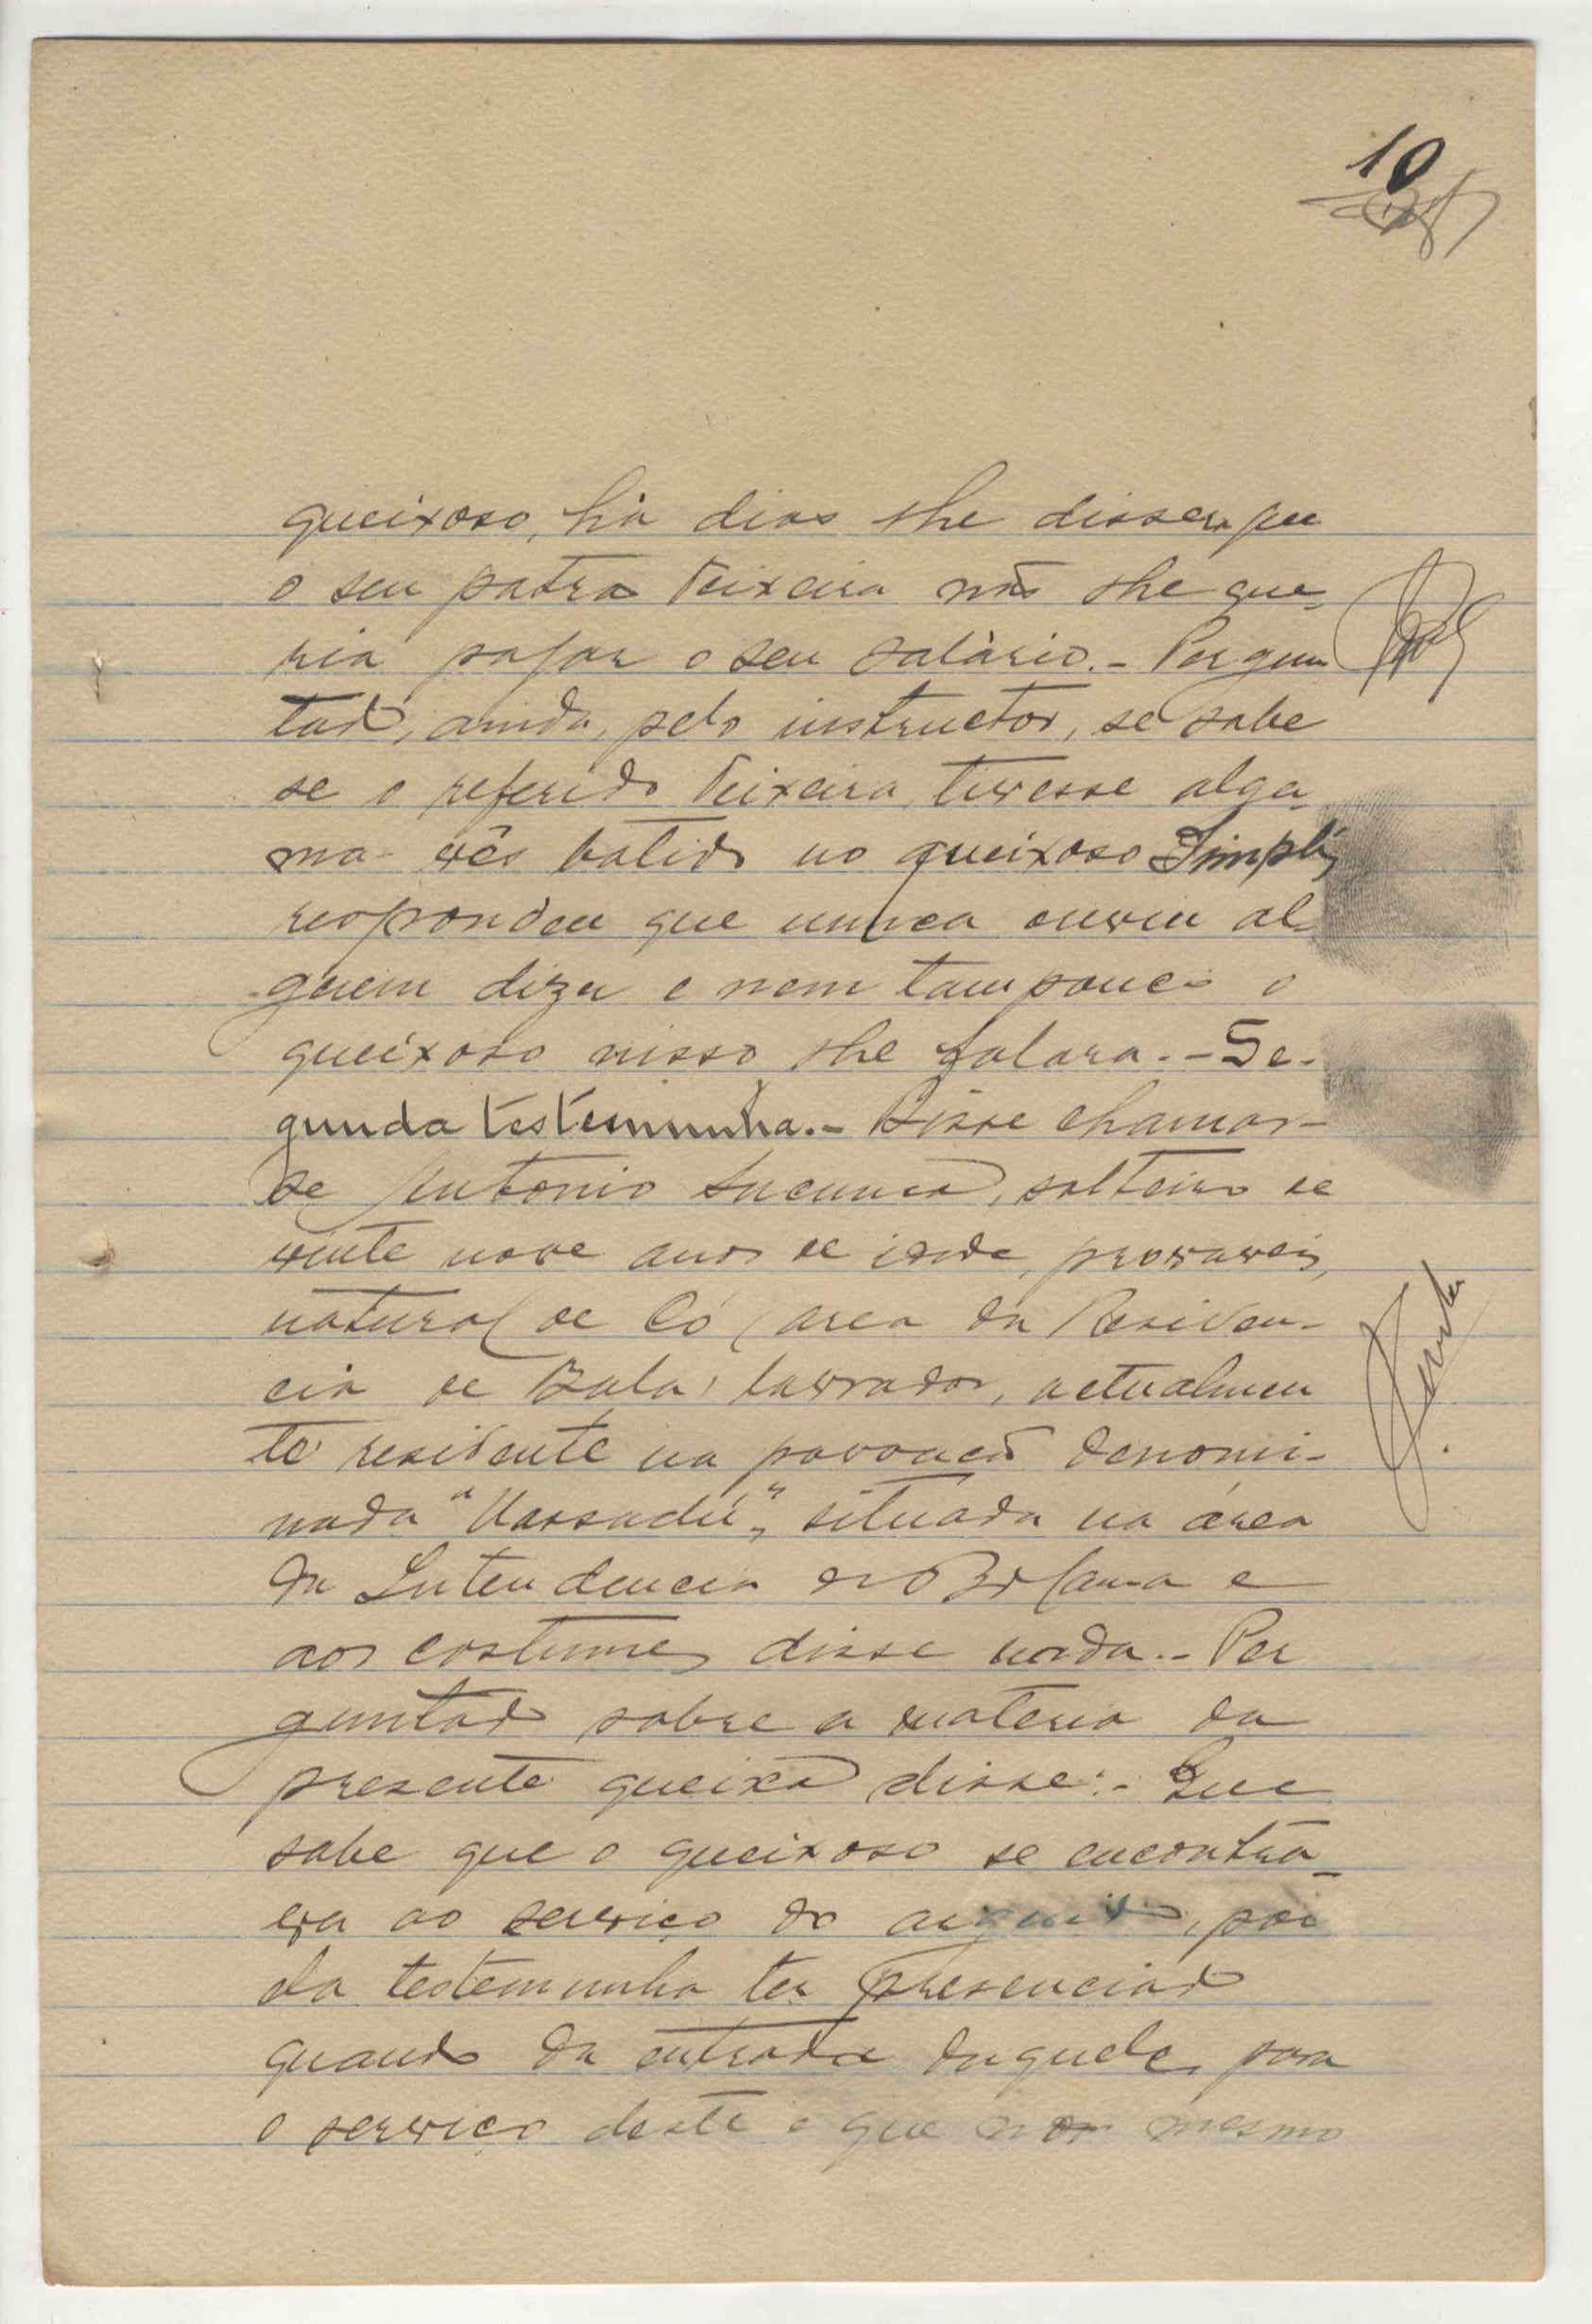 10
queixoso, há dias lhe dissera que
o seu patrão Teixeira não lhe que-
ria pagar o seu salàrio.- Pergun
tado, ainda, pelo instructor, se sabe
se o referido Teixeira tivesse algu-
ma vês batido no queixoso Simplis
respondeu que nunca ouviu al-
guem dizer e nem tampouco o
queixoso nisso lhe falara.- Se-
gunda testemunha.- Disse chamar-
se Antonio, solteiro de
vinte nove anos de idade, provaveis,
natural de Có, area da Residen-
cia de Bula, lavrador, actualmen
te residente na povoação denomi-
nada "Vassadú", situada na área
da Intendencia de Bolama e
aos costumes disse nada.- Per
guntado sobre a materia da
presente queixa disse:- Que
sabe que o queixoso se encontra-
va ao serviço do arguido, poi
da testemunha ter presenciado
quando da entrada daquele para
o serviço deste e que mesmo